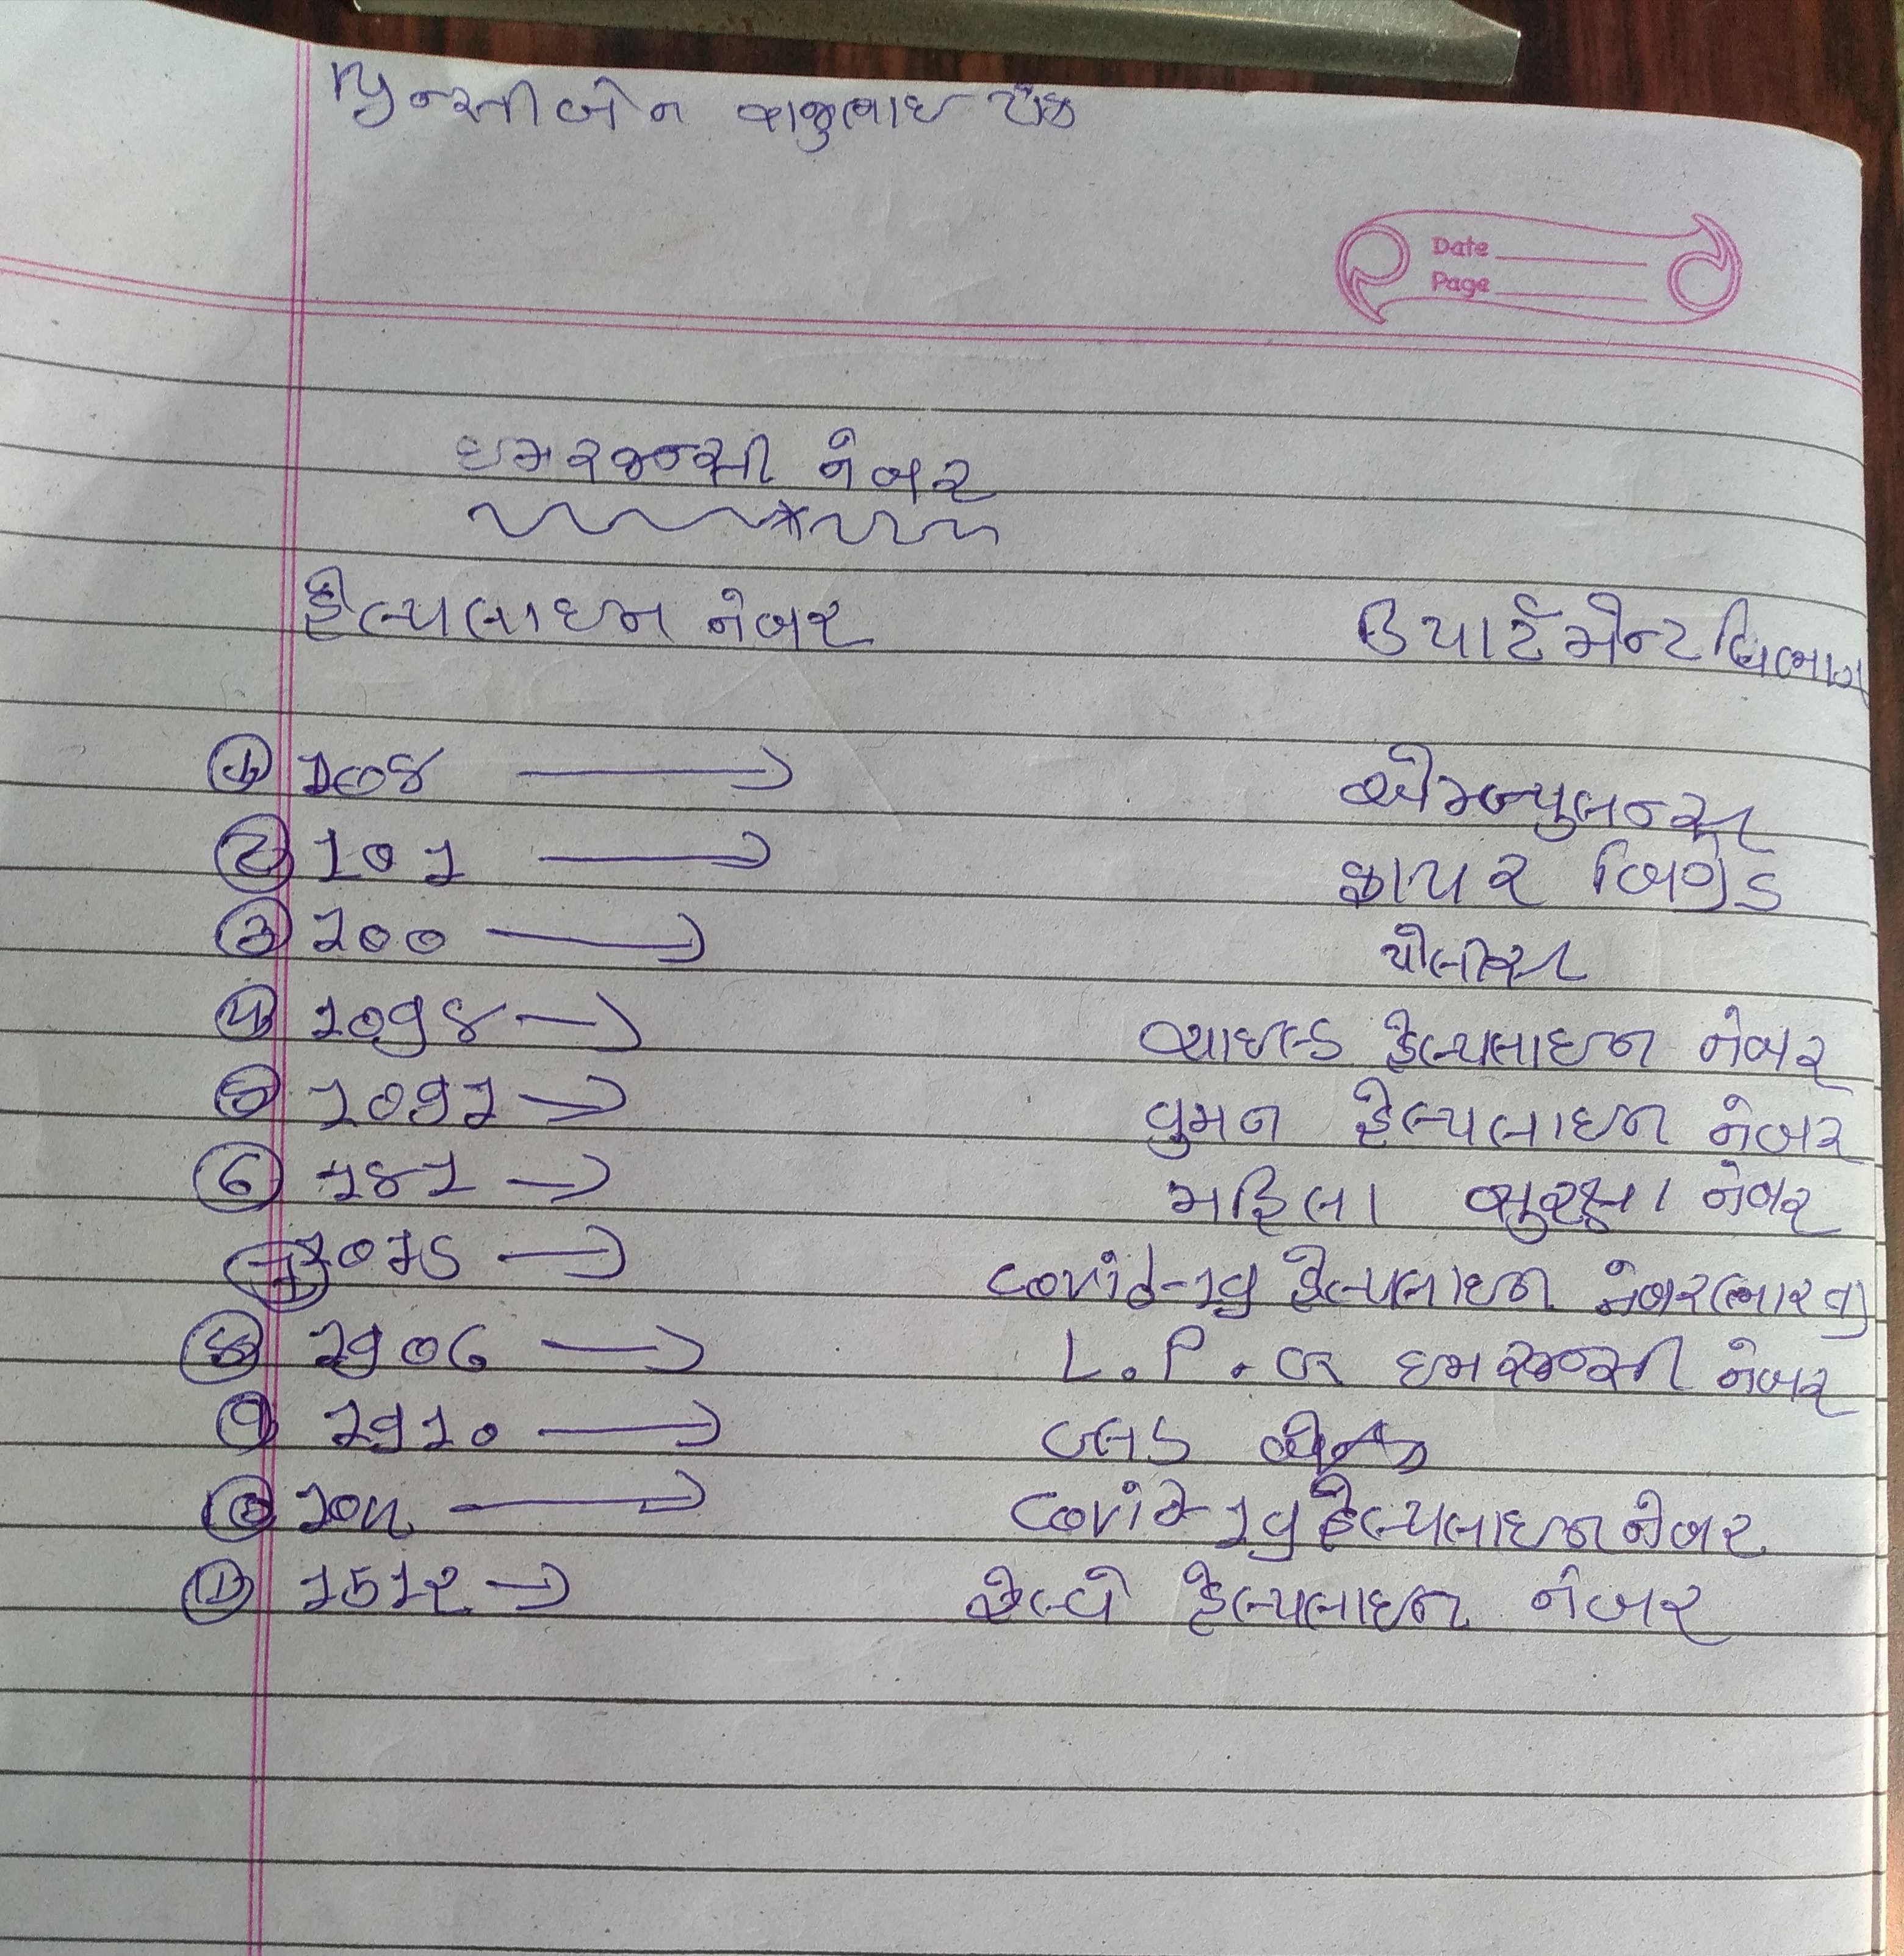 પ્રિન્સીબેન રાજુભાઇ ટાંક
Date
Page
ઇમરજન્સી નંબર
હેલ્પલાઇન નંબર ડિપાર્ટમેન્ટ વિભાગ
૧ 108 એમ્બ્યુલન્સ
૨ 101 ફાયર બ્રિગેડ
૩ 100 પોલીસ
૪ 1098 ચાઇલ્ડ હેલ્પલાઇન નંબર
૫ 1091 વુમન હેલ્પલાઇન નંબર
6 181 મહિલા સુરક્ષા નંબર
7 1075 covid-19 હેલ્પલાઇન નંબર (ભારત)
8 1906 L.P.G ઇમરજન્સી નંબર
9 1910 બ્લડ બેન્ક
104 covid-19 હેલ્પલાઇન નંબર
11 1512 રેલ્વે હેલ્પલાઇન નંબર